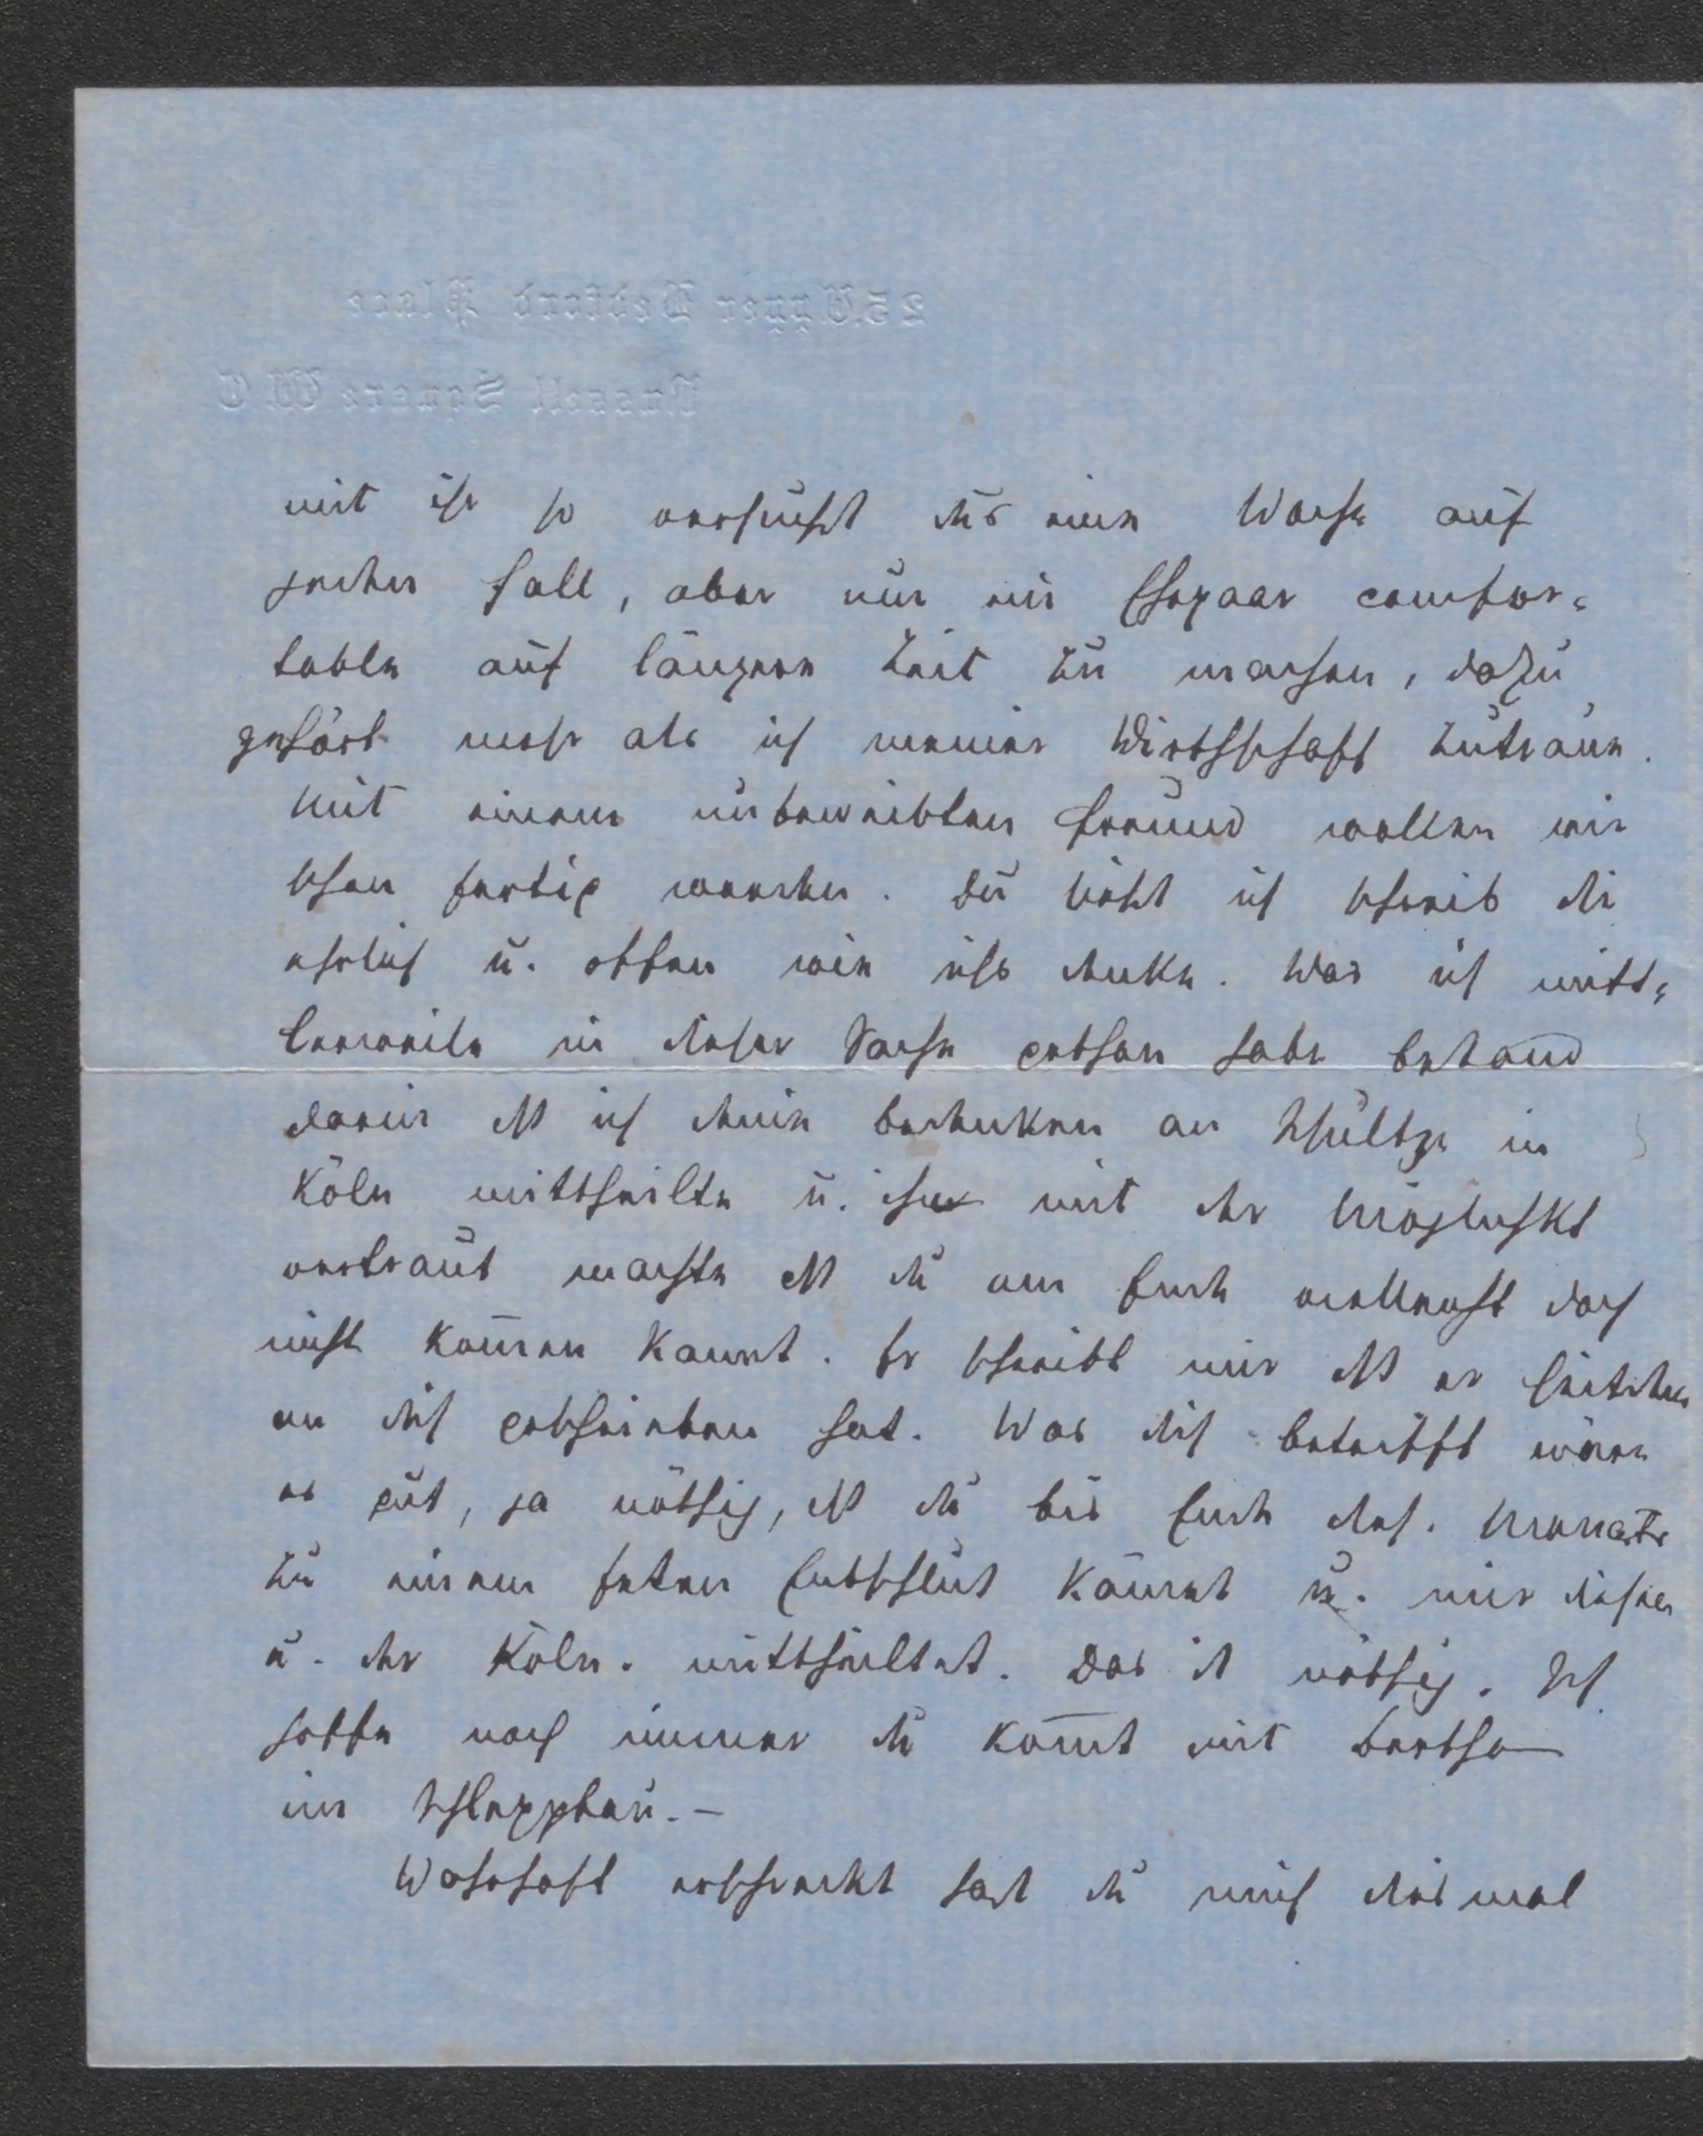 25, Upper Bedford Place
Russell Square W.C.
mit ihr so versuchst Du's eine Woche auf
jeden Fall, aber nun ein Ehepaar comfor-
table auf längere Zeit zu machen, dazu
gehört mehr als ich meiner Wirthschaft zutraue.
Mit einem unbeweibten Freund wollen wir
schon fertig werden. Du siehst ich schreib Dir
ehrlich u. offen wie ich's denke. Was ich mitt-
lerweile in dieser Sache gethan habe bestand
darin daß ich Deine Bedenken an Schultze in
Köln mittheilte u. ihn mit der Möglichkt
vertraut machte daß Du am Ende vielleicht doch
nicht kommen kannst. Er schreibt mir daß er seitdem
an Dich geschrieben hat. Was Dich betrifft wäre
es gut, ja nöthig, daß Du bis Ende dies. Monats
zu einem festen Entschluß kämest u. mir diesen
u. der Köln. mittheiltest. Das ist nöthig. Ich
hoffe noch immer Du kommst mit Bertha
im Schlepptau. –
Wahrhaft erschreckt hast Du mich diesmal